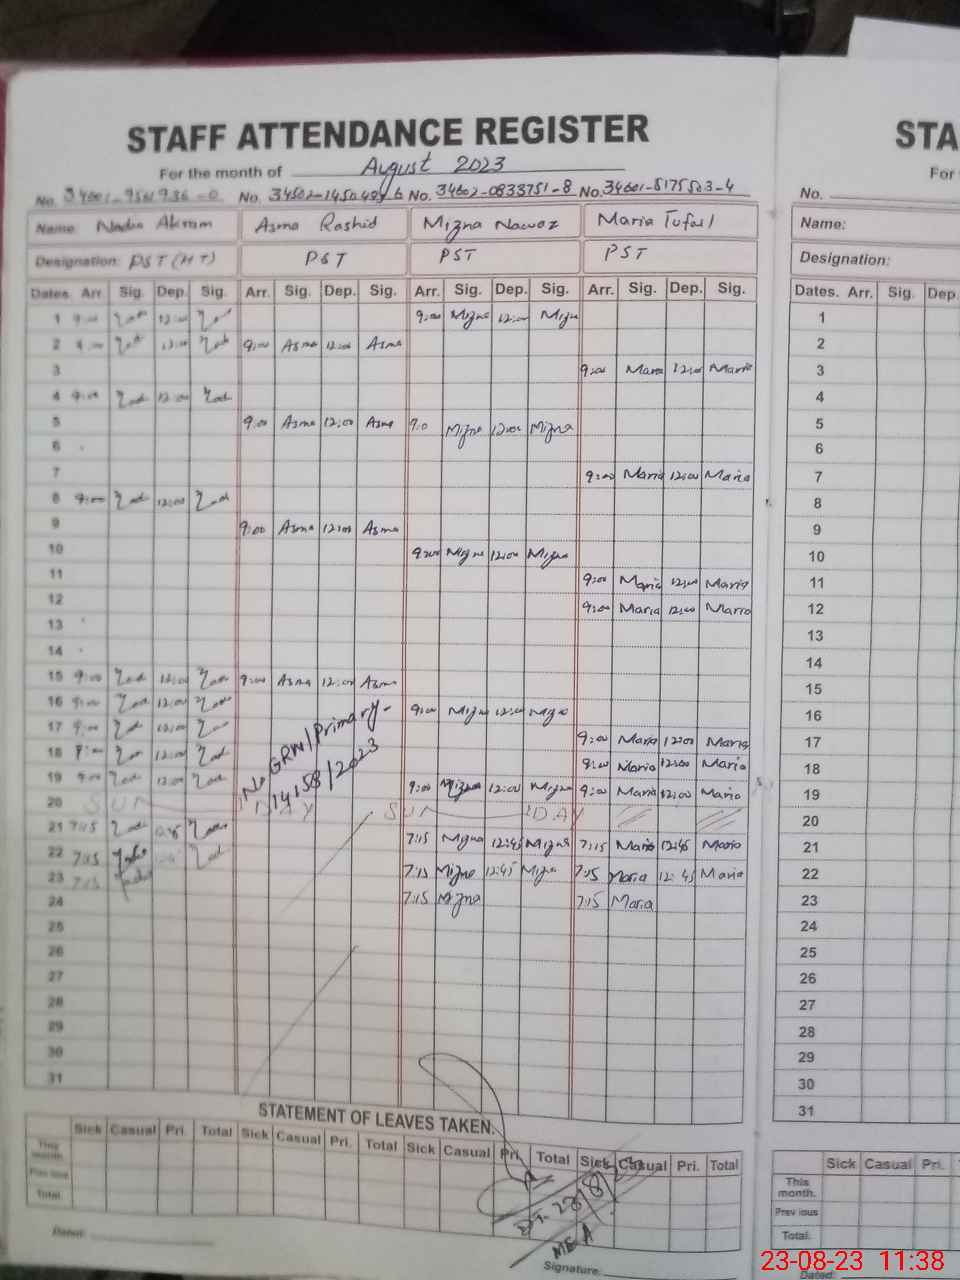 STAFF ATTENDANCE REGISTER
For the month of August 2023
No. No. No. 34602-0833751-8 No. 34601-8175503-4
Name Nadia Akram Asma Rashid Mizna Nawaz Maria Tufail
Designation: PST (HT) PST PST PST
Dates. Arr. Sig. Dep. Sig. Arr. Sig. Dep. Sig. Arr. Sig. Dep. Sig. Arr. Sig. Dep. Sig.
1 9:00 12:00 9:00 Mizna 12:00 Mizna
2 9:00 12:00 9:00 Asma 12:00 Asma
3 9:00 Maria 12:00 Maria
4 9:00 12:00
5 9:00 Asma 12:00 Asma 9:0 Mizna 12:00 Mizna
6
7 9:00 Maria 12:00 Maria
8 9:00 12:00
9 9:00 Asma 12:00 Asma
10 9:00 Mizna 12:00 Mizna
11 9:00 Maria 12:00 Maria
12 9:00 Maria 12:00 Maria
13
14
15 9:00 12:00 9:00 Asma 12:00 Asma
16 9:00 12:00 9:00 Mizna 12:00 Mizna
17 9:00 12:00 9:00 Maria 12:00 Maria
18 9:00 12:00 9:00 Maria 12:00 Maria
19 9:00 12:00 9:00 Mizna 12:00 Mizna 9:00 Maria 12:00 Maria
No GRW/Primary-
14158/2023
20 SUN DAY SUN DAY
21 7:15 7:15 Mizna 12:45 Mizna 7:15 Maria 12:45 Maria
22 7:15 7:15 Mizna 12:45 Mizna 7:15 Maria 12:45 Maria
23 7:15 7:15 Mizna 7:15 Maria
24
25
26
27
28
29
30
31
STATEMENT OF LEAVES TAKEN.
Sick Casual Pri. Total Sick Casual Pri. Total Sick Casual Pri. Total Sick Casual Pri. Total
This month.
Previous
Total.
MEA
Dated:
Signature:
STA
For
No.
Name:
Designation:
Dates. Arr. Sig. Dep.
1
2
3
4
5
6
7
8
9
10
11
12
13
14
15
16
17
18
19
20
21
22
23
24
25
26
27
28
29
30
31
Sick Casual Pri.
This
month.
Previous
Total.
Dated:
23-08-23 11:38